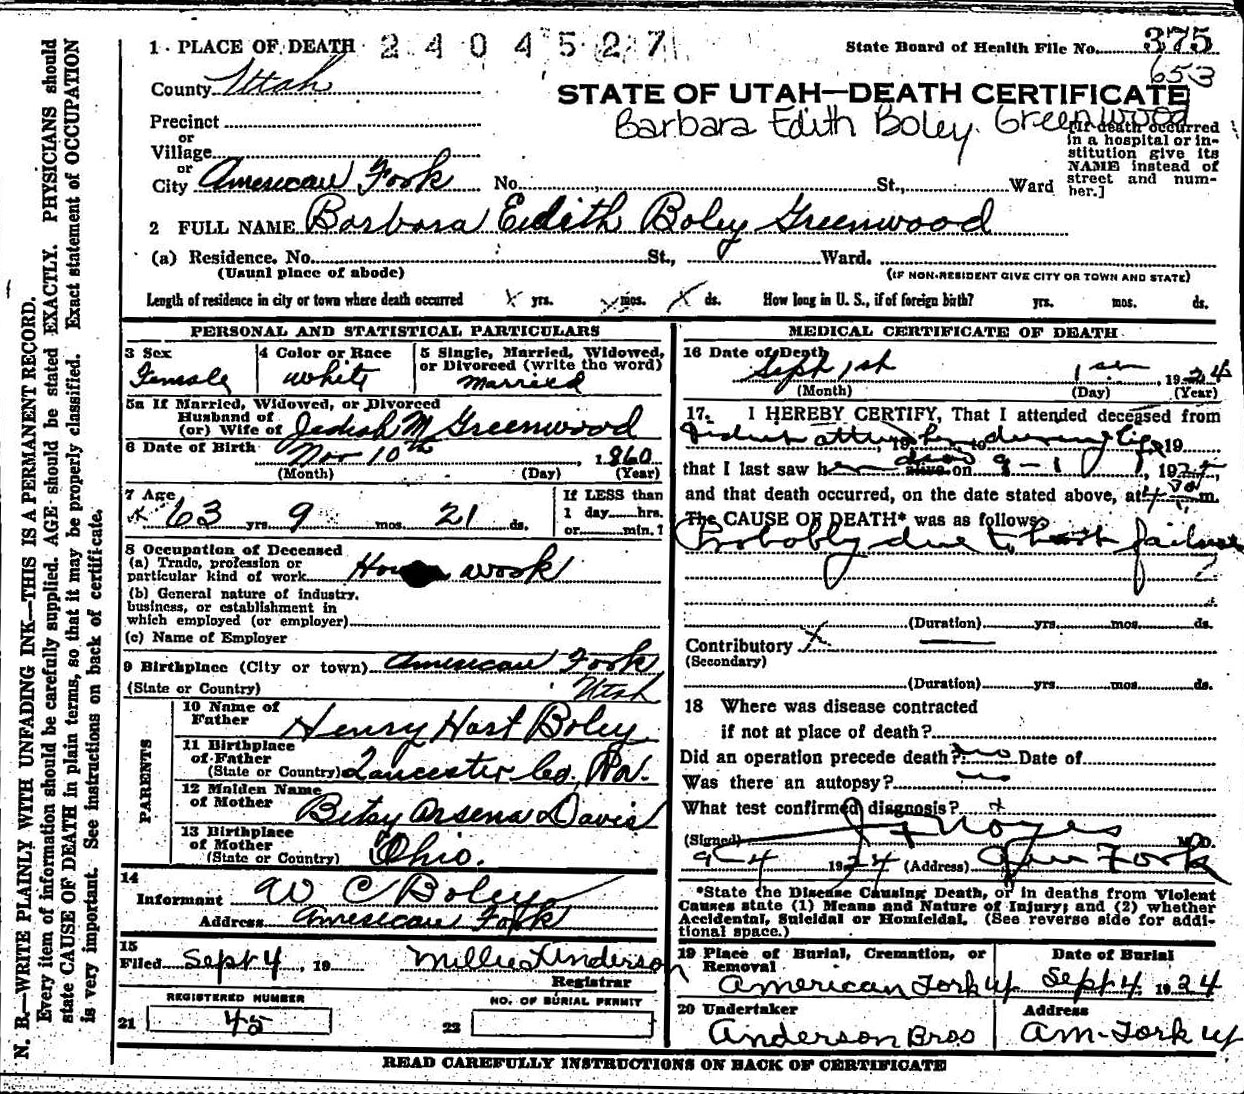 1 PLACE OF DEATH 2404527 State Board of Health File No. 375
653
County Utah
STATE OF UTAH—DEATH CERTIFICATE
Barbara Edith Boley Greenwood
Precinct
or
Village
or
City American Fork No. St., Ward
[If death occurred
in a hospital or in-
stitution give its
NAME instead of
street and num-
ber.]
2 FULL NAME Barbara Edith Boley Greenwood
(a) Residence. No. St., Ward.
(Usual place of abode) (IF NON-RESIDENT GIVE CITY OR TOWN AND STATE)
Length of residence in city or town where death occurred x yrs. x mos. x ds. How long in U. S., if of foreign birth? yrs. mos. ds.
PERSONAL AND STATISTICAL PARTICULARS
3 Sex 4 Color or Race 5 Single, Married, Widowed,
or Divorced (write the word)
Female White Married
5a If Married, Widowed, or Divorced
Husband of
(or) Wife of Jediah M Greenwood
6 Date of Birth Nov 10th, 1860
(Month) (Day) (Year)
7 Age If LESS than
63 yrs. 9 mos. 21 ds. 1 day hrs.
or min.?
8 Occupation of Deceased
(a) Trade, profession or
particular kind of work House work
(b) General nature of industry,
business, or establishment in
which employed (or employer)
(c) Name of Employer
9 Birthplace (City or town) American Fork
(State or Country) Utah
PARENTS
10 Name of
Father Henry Hart Boley
11 Birthplace
of Father
(State or Country) Lancester Co. Pa.
12 Maiden Name
of Mother Betsy Arsena Davis
13 Birthplace
of Mother
(State or Country) Ohio.
14
Informant W C Boley
Address American Fork
15
Filed Sept 4, 19 Millie Anderson
Registrar
REGISTERED NUMBER NO. OF BURIAL PERMIT
21 45 22
MEDICAL CERTIFICATE OF DEATH
16 Date of Death
Sept 1st 1924
(Month) (Day) (Year)
17. I HEREBY CERTIFY, That I attended deceased from
did not attend her during life, 19
that I last saw her dead alive on 9-1, 1924,
and that death occurred, on the date stated above, at 4 m.
The CAUSE OF DEATH* was as follows:
Probably due to heart failure
(Duration) yrs. mos. ds.
Contributory x
(Secondary)
(Duration) yrs. mos. ds.
18 Where was disease contracted
if not at place of death?
Did an operation precede death? no Date of
Was there an autopsy? no
What test confirmed diagnosis?
(Signed) J F Noyes M.D.
9-4 1924 (Address) Am Fork
*State the Disease Causing Death, or in deaths from Violent
Causes state (1) Means and Nature of Injury; and (2) whether
Accidental, Suicidal or Homicidal. (See reverse side for addi-
tional space.)
19 Place of Burial, Cremation, or
Removal Date of Burial
American Fork Ut Sept 4, 1924
20 Undertaker Address
Anderson Bros Am-Fork Ut
READ CAREFULLY INSTRUCTIONS ON BACK OF CERTIFICATE
N. B.—WRITE PLAINLY WITH UNFADING INK—THIS IS A PERMANENT RECORD.
Every item of information should be carefully supplied. AGE should be stated EXACTLY. PHYSICIANS should
state CAUSE OF DEATH in plain terms, so that it may be properly classified. Exact statement of OCCUPATION
is very important. See instructions on back of certificate.